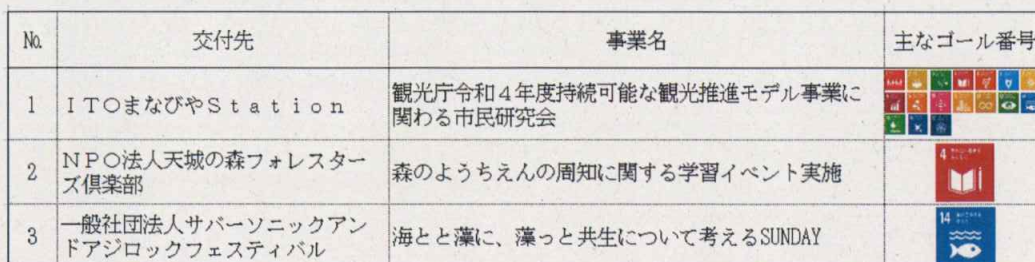 No. 交付先 事業名 主なゴール番号
1 ITOまなびやStation 観光庁令和4年度持続可能な観光推進モデル事業に
関わる市民研究会
2 NPO法人天城の森フォレスター
ズ倶楽部 森のようちえんの周知に関する学習イベント実施 4
3 一般社団法人サバーソニックアン
ドアジロックフェスティバル 海とと藻に、藻っと共生について考えるSUNDAY 14